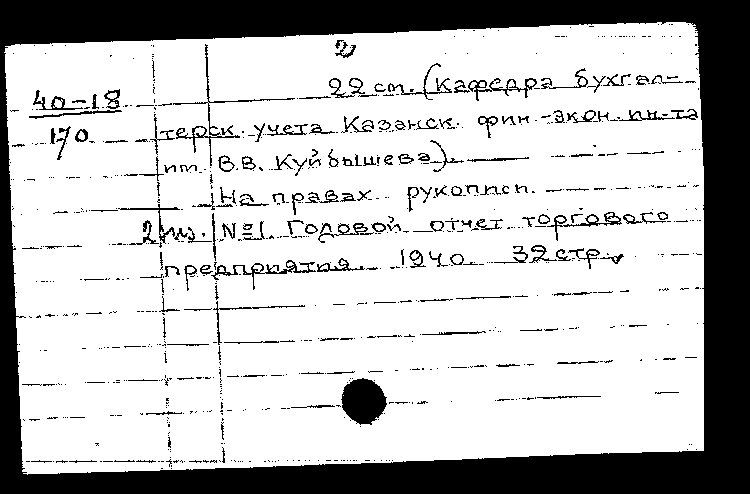 2
22 ст. (Кафедра бухгал-
40-18
170
терск. учета Казанск. фин-экон. ин-та
им. В.В. Куйбышева).
На правах рукописи.
2 экз. №1. Годовой отчет торгового
предприятия. 1940. 32 стр.